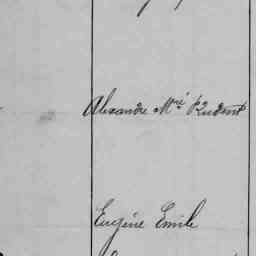 Alexandre Mrié Prudent
Eugène Emile